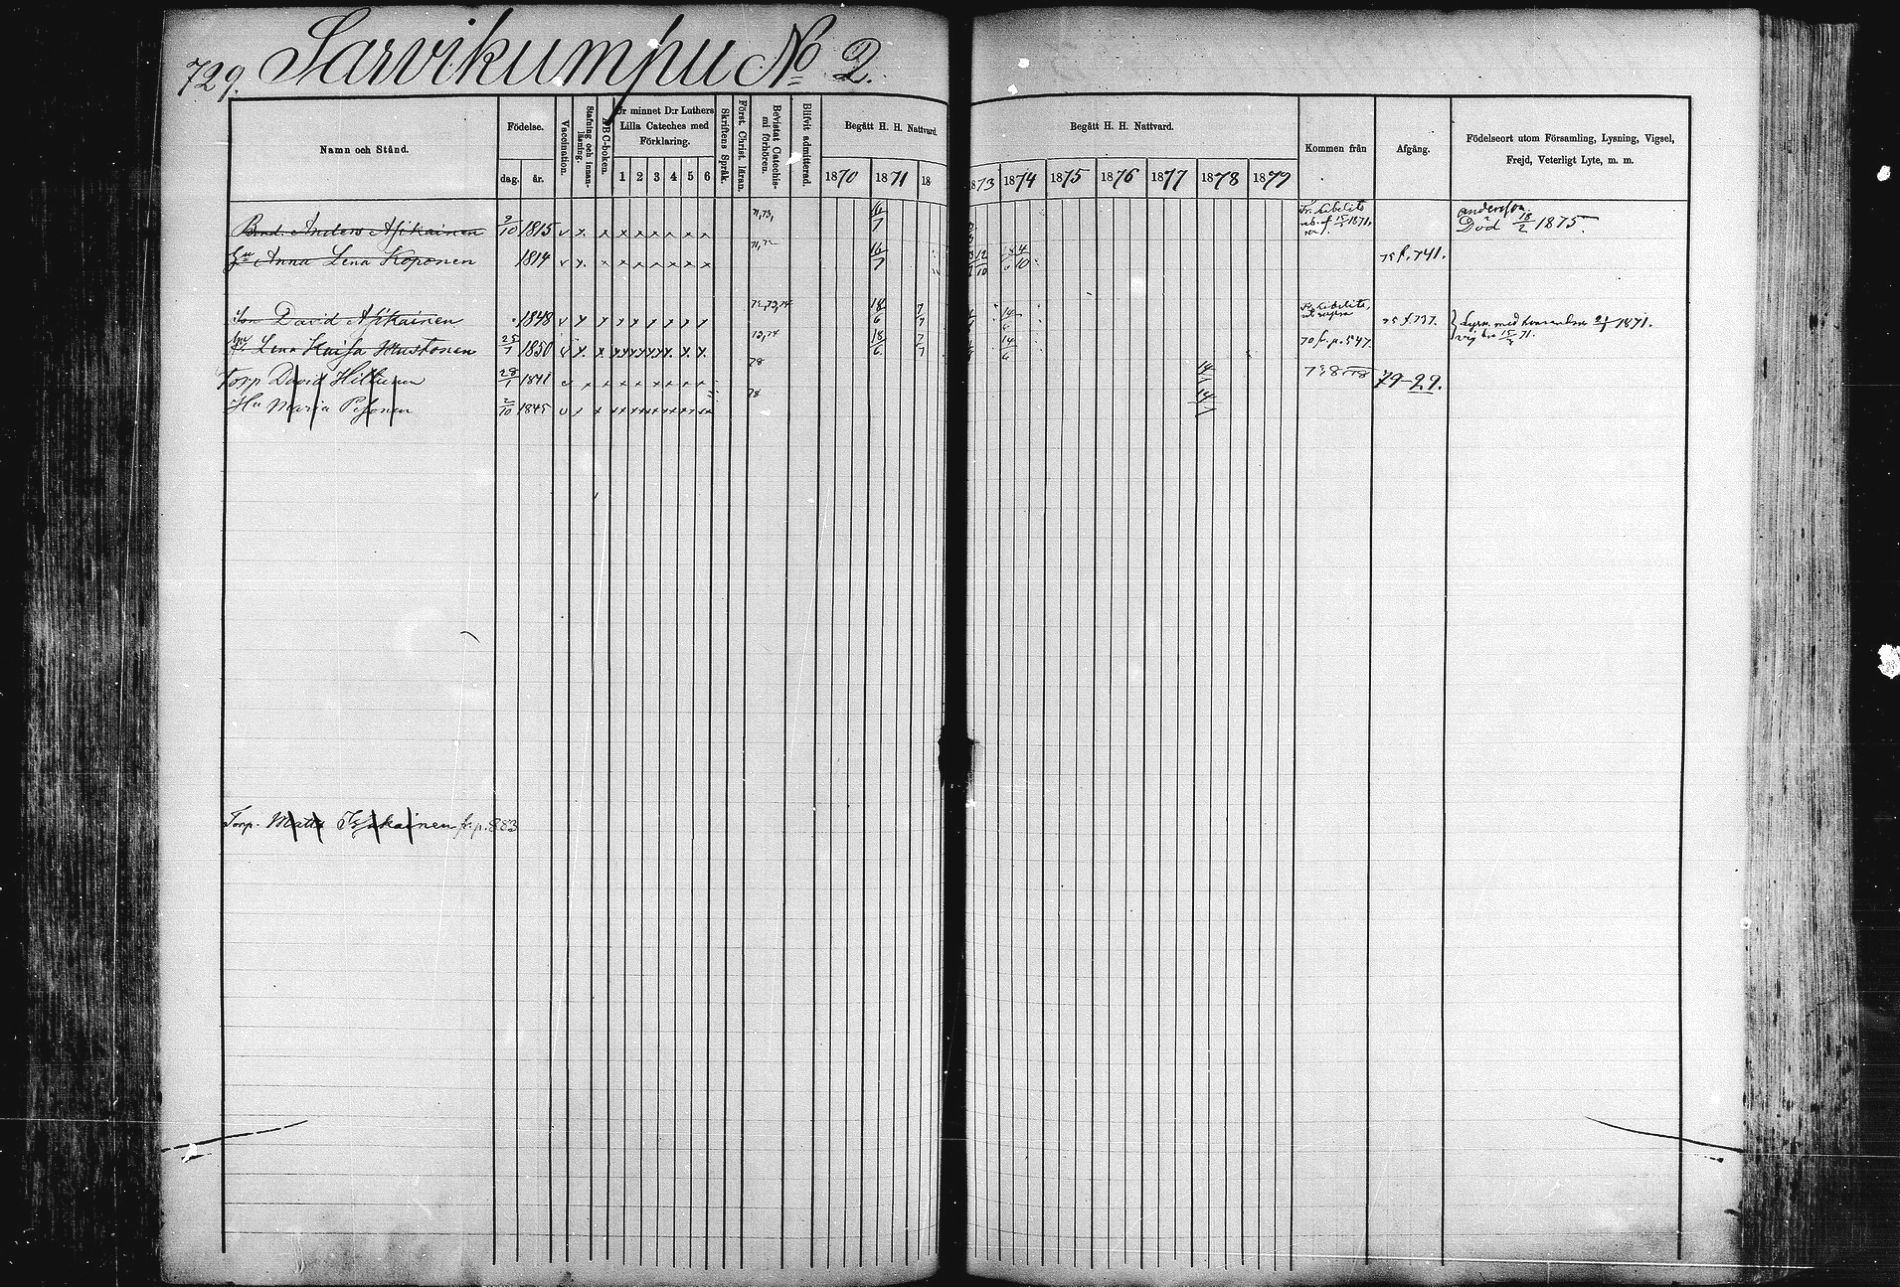 729. Sarvikumpu No 2.
Namn och Stånd.
Födelse.
dag. år.
Vaccination.
Stafning och innanläsning.
ABC-boken.
Ur minnet D:r Luthers Lilla Cateches med Förklaring.
1 2 3 4 5 6
Skriftens Språk.
Först. Christ. läran.
Bevistat Catechismi förhören.
Blifvit admitterad.
Begått H. H. Nattvard.
1870 1871 18
Begått H. H. Nattvard.
1873 1874 1875 1876 1877 1878 1879
Kommen från
Afgång.
Födelseort utom Församling, Lysning, Vigsel, Frejd, Veterligt Lyte, m. m.
Bond. Anders Asikainen 2/10 1815 v x x x x x x x x 71,73, 16/7 Fr. Libelits 1871, Död 18/2 1875.
Hu Anna Lena Koponen 1814 v x x x x x x x x 71,72 16/7 75 f. 741.
Son David Asikainen 1848 v x x x x x x x x 72,73,74 18/6 7/7 14/6 Fr. Libelits, ut supra 75 f. 737. Lysn. med 1871.
Hu Lena Kaisa Mustonen 25/7 1850 v x x x x x x x x 73,74 18/6 7/7 14/6 70 fr. p. 547. vig. 71.
Torp David Hiltunen 28/1 1841 v x x x x x x x x 78 14/1 79-29.
Hu Maria Pesonen 2/10 1845 v x x x x x x x x 78 14/1
Torp. Matts fr. p. 883